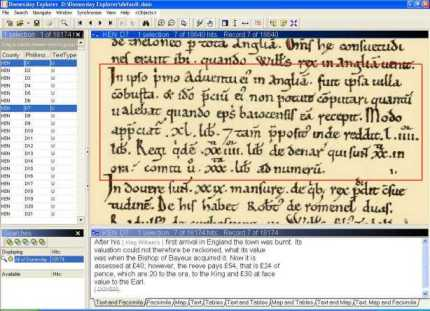 Domesday Explorer - D:\Domesday Explorer\default.dom
File Search Navigate Window Synchronise View Help <Objects>
1 selection 1 of 18174
County Philimp... TextType
KEN D1 U
KEN D2 U
KEN D3 U
KEN D4 U
KEN D5 U
KEN D6 U
KEN D7 U
KEN D8 U
KEN D9 U
KEN D10 U
KEN D11 U
KEN D12 U
KEN D13 U
KEN D14 U
KEN D15 U
KEN D16 U
KEN D17 U
KEN D18 U
KEN D19 U
KEN D20 U
KEN D21 U
Searches
Displaying Hits:
All of Domesday 18174
Available Hits:
KEN D7 1 selection 7 of 18640 hits Record 7 of 18640
de theloneo p tota anglia. Oms he consuetudi
nes erant ibi. quando Wills rex in anglia uenit.
In ipso pmo aduentu ei in anglia. fuit ipsa uilla
cobusta. & ido pciu ei non potuit coputari quantu
ualebat quando eps baiocensis ea recepit. Modo
appciat .xl. lib. 7 tam pposit inde reddit .l.iiii.
lib. Regi qde .xx.iiii. lib de denar qui sun .xx. in
ora. comiti u .xxx. lib ad numeru.
In douere sun .xx.ix. mansure. de qb rex pdit csue
tudine. De his habet Robt de romenel duas.
KEN D7 1 selection 7 of 18174 hits Record 7 of 18174
After his [King William's] first arrival in England the town was burnt. Its
valuation could not therefore be reckoned, what its value
was when the Bishop of Bayeux acquired it. Now it is
assessed at £40; however, the reeve pays £54, that is £24 of
pence, which are 20 to the ora, to the King and £30 at face
value to the Earl.
Text and Facsimile Facsimile Map Text Tables Text and Tables Map and Tables Text and Map Text, Map and Facsimile